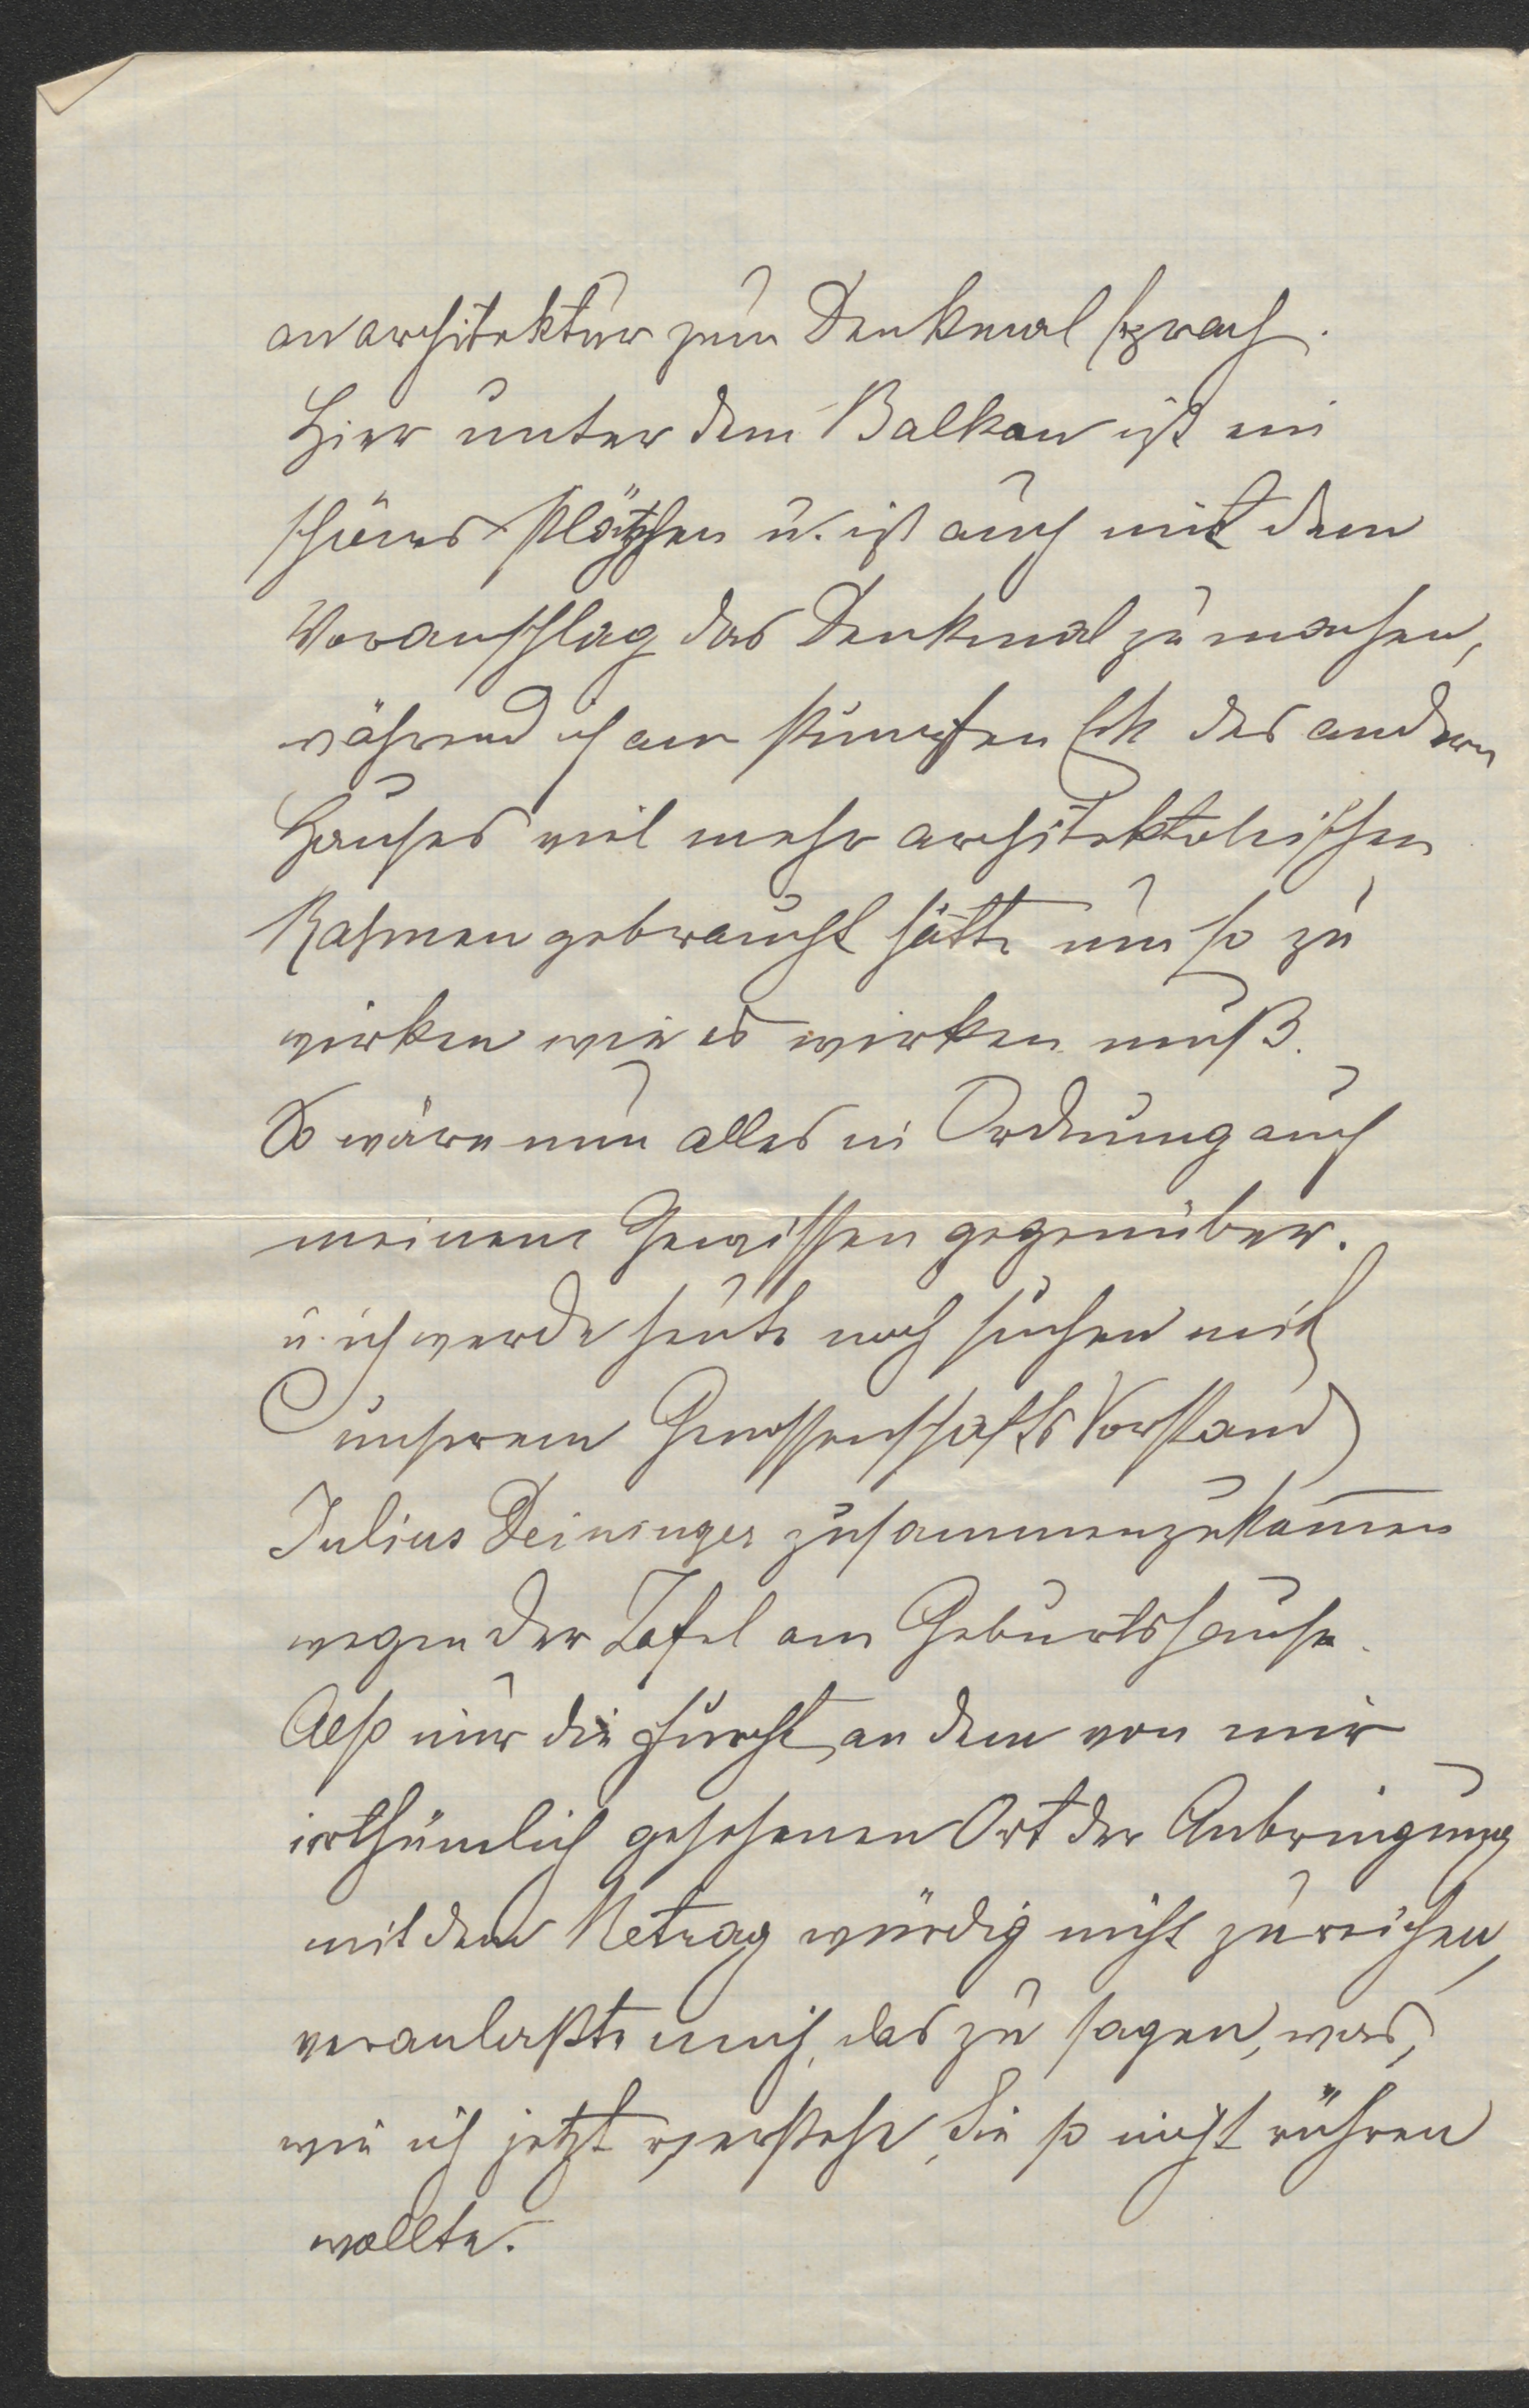 an architektur zum Denkmal sprach.
Hier unter dem Balkon ist ein
schönes Plätzchen u. ist auch mit dem
Voranschlag das Denkmal zu machen,
während ich am stumpfen Eck des andern
Hauses viel mehr architektonischen
Rahmen gebraucht hätte um so zu
wirken wie es wirken muß.
So wäre nun alles in Ordnung auch
meinem Gewissen gegenüber.
u. ich werde heute noch suchen mit
unserem Genossenschafts Vorstand
Julius Deininger zusammenzukom̄en
wegen der Tafel am Geburtshause.
Also nur die Furcht, an dem von mir
irrthümlich gesehenen Ort der Anbringung
mit dem Betrag würdig nicht zureichen,
veranlaßte mich, das zu sagen, was,
wie ich jetzt verstehe, Sie so nicht rühren
wollte.